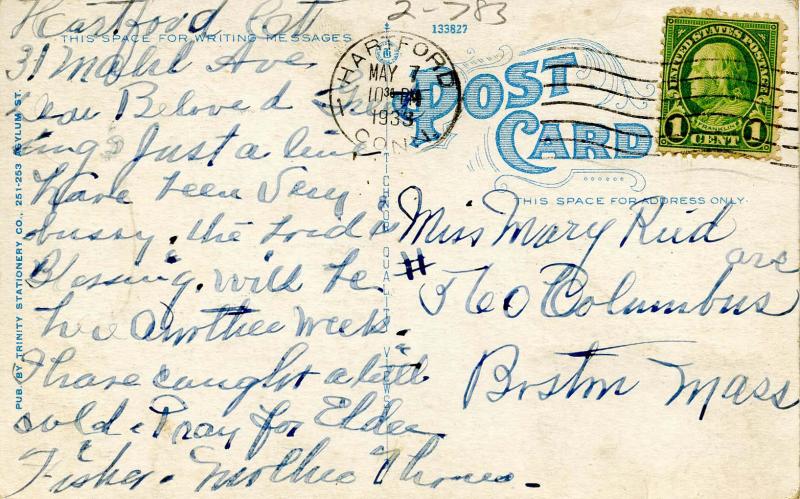 2-783
133827
THIS SPACE FOR WRITING MESSAGES
POST CARD
THIS SPACE FOR ADDRESS ONLY.
HARTFORD
MAY 7
10 30 PM
1933
CONN.
UNITED STATES POSTAGE
FRANKLIN
1 CENT 1
PUB. BY TRINITY STATIONERY CO., 251-253 ASYLUM ST.
QUALITY VIEWS
Hartford Ctt
31 Mahl Ave
Dear Beloved
Just a line
have been very
bussy. the Lord is
Blessing. will be
here Another week.
I have caught a little
cold. Pray for Elder
Fisher. Mother Thomas.
Miss Mary Reid
# 760 Columbus ave
Boston Mass